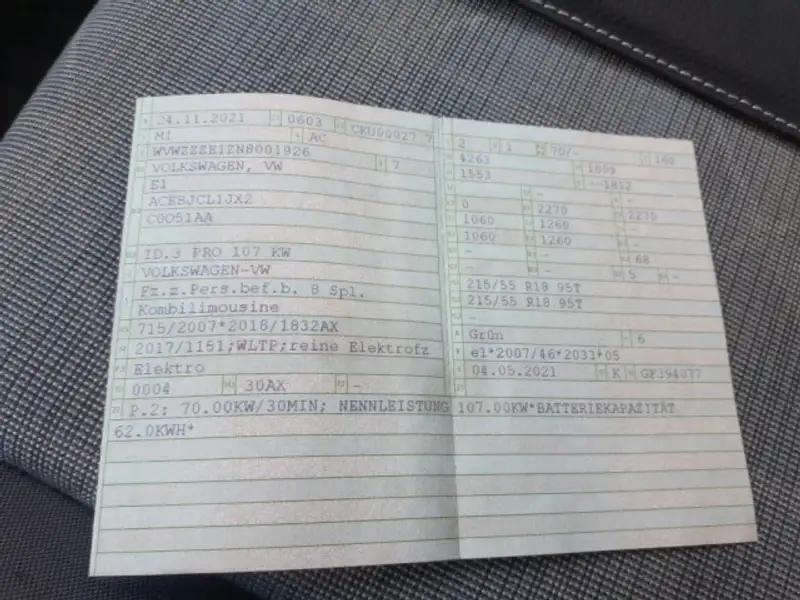 24.11.2021 0603 CKU00027 7
M1 AC
WVWZZZE1ZN8001926
VOLKSWAGEN, VW 7
E1
ACEBJCL1JX2
C0051AA
ID.3 PRO 107 KW
VOLKSWAGEN-VW
Fz.z.Pers.bef.b. 8 Spl.
Kombilimousine
715/2007*2018/1832AX
2017/1151;WLTP;reine Elektrofz
Elektro
0004 30AX -
P.2: 70.00KW/30MIN; NENNLEISTUNG 107.00KW*BATTERIEKAPAZITÄT
62.0KWH*
2 1 70/- 160
4263 1809
1553 --1812
- -
0 2270 2270
1060 1260 -
1060 1260 -
- - 68
- - 5 -
215/55 R18 95T
215/55 R18 95T
-
Grün 6
e1*2007/46*2033*05
04.05.2021 K GF394077